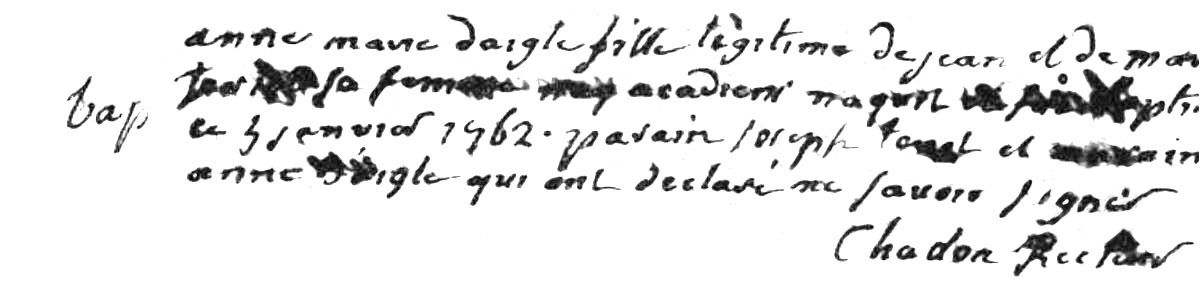 anne marie daigle fille légitime de jean et de mar
sa femme acadiens naquit
bap
le 3 janvier 1762. parain joseph et
anne daigle qui ont declaré ne savoir signer
Chadon Recteur